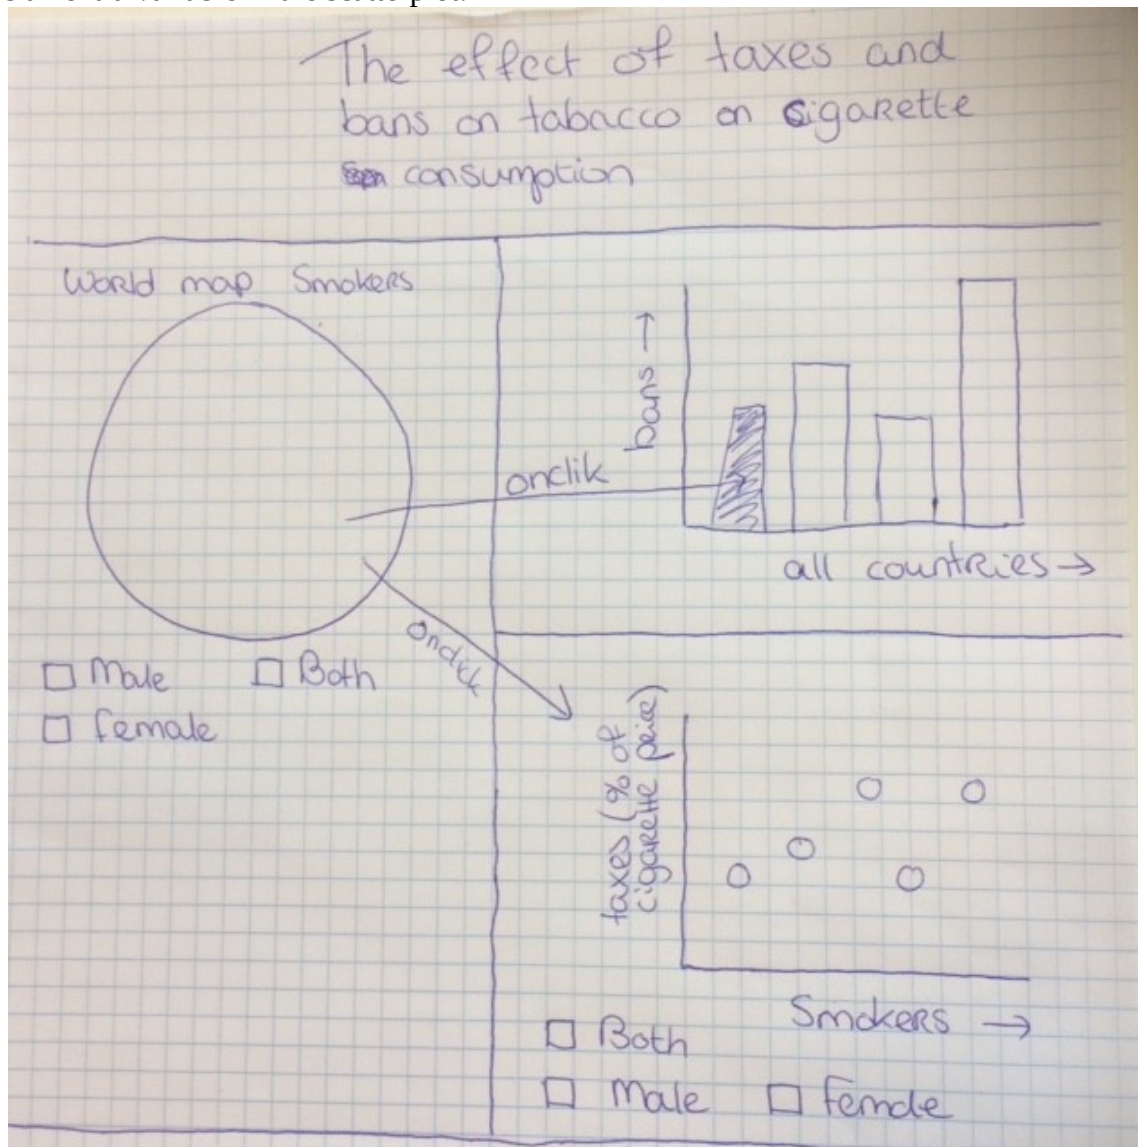 The effect of taxes and
bans on tabacco on cigarette
consumption
World map Smokers
Male
Both
female
onclik
onclick
bans →
all countries →
taxes (% of
cigarette price)
Smokers →
Both
Male
Female